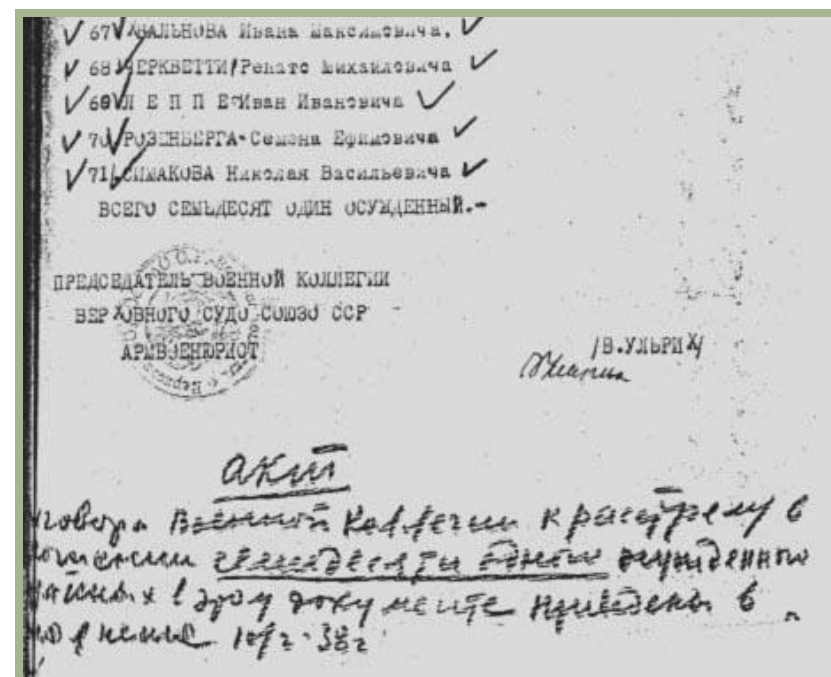 67 АВАЛЬНОВА Ивана Максимовича.
68 ЧЕРКВЕТТИ Ренато Михайловича
69 Л Е П П Е Иван Ивановича
70 РОЗЕНБЕРГА-Семена Ефимовича
71 СИМАКОВА Николая Васильевича
ВСЕГО СЕМЬДЕСЯТ ОДИН ОСУЖДЕННЫЙ.-
ПРЕДСЕДАТЕЛЬ ВОЕННОЙ КОЛЛЕГИИ
ВЕРХОВНОГО СУДО СОЮЗО ССР
АРМВОЕНЮРИСТ
/В.УЛЬРИХ/
акт
говора Военной Коллегии к расстрелу в
ношении семидесяти одного осужденно
занных в этом документе приведены в
10/2-38г